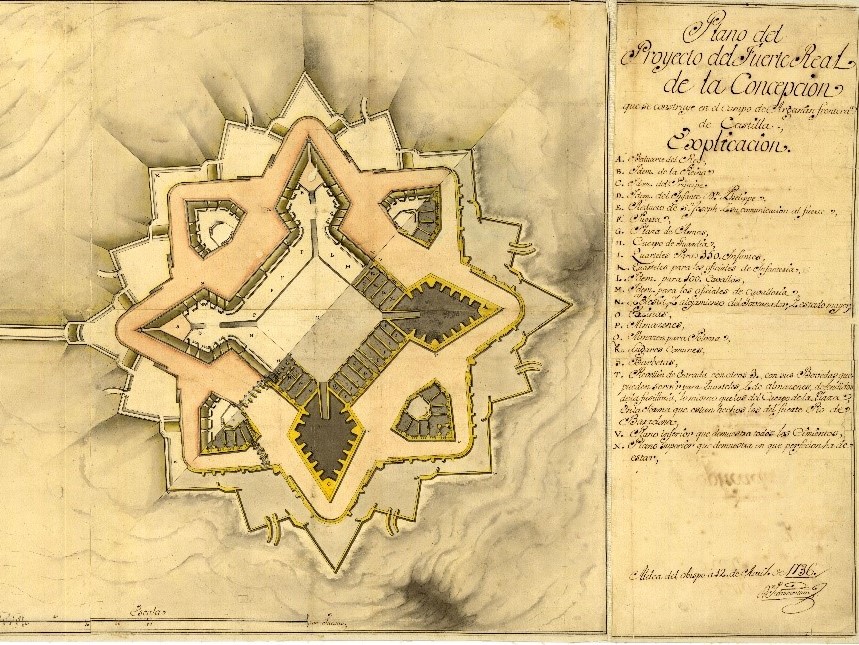 Plano del
Proyecto del Fuerte Real
de la Concepcion
que se construye en el Campo de Argañan frontera
de Castilla.
Explicacion.
A. Baluarte del Rey.
B. Idem. de la Reina
C. Idem. del Principe
D. Idem. del Infante Dn. Phelipe
E. Reducto de Sn. Joseph comunicacion al fuerte
F. Puerta
G. Plaza de Armas,
H. Cuerpo de Guardia,
I. Quarteles Para 330. Infantes,
K. Quarteles para los oficiales de Infanteria,
L. Idem. para 100. Cavallos,
M. Idem. para los oficiales de Cavalleria,
N. Alojamiento del Governador, estado mayor,
O.
P. Almazenes,
Q. Almazen para Polvora,
R. Lugares Comunes,
S. Barbetas,
T. de Entrada con otros 2. con sus que
pueden servir para Quarteles, de almazenes, defendidos
de la lo mismo que los del Cuerpo de la Plaza
en la forma que estan hechos los del fuerte Pio de
Barcelona,
V. Plano inferior que demuestra todos los Cimientos,
X. Plano superior que demuestra en que perficion ha de
estar,
Aldea del Obispo a 12. de Abril de 1736.
Escala